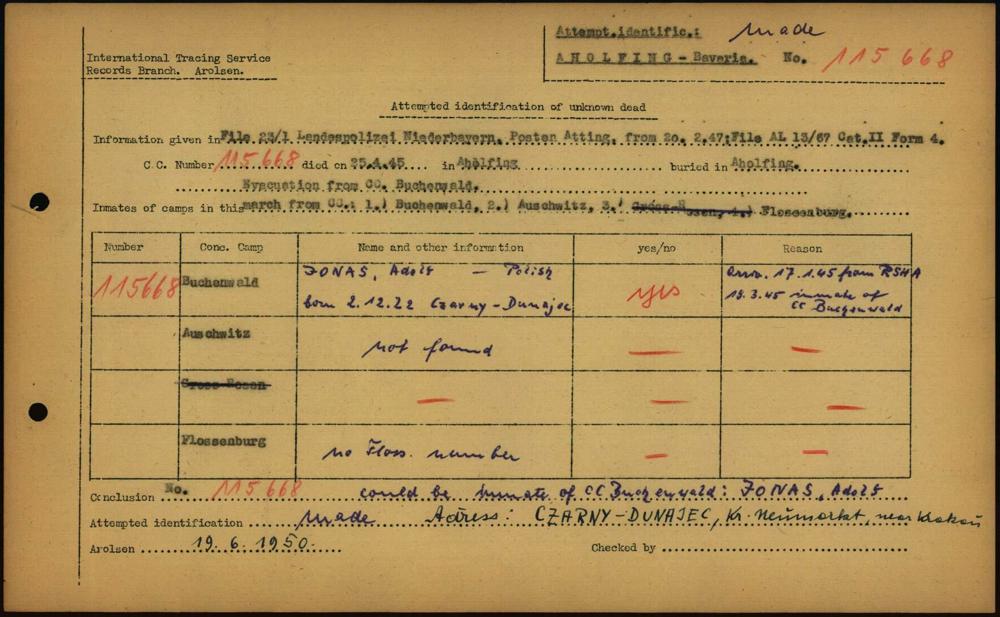 Attempt.identific.: made
International Tracing Service
Records Branch. Arolsen.
AHOLFING - Bavaria. No. 115 668
Attempted identification of unknown dead
Information given in File 23/1 Landespolizei Niederbayern, Posten Atting, from 20. 2.47; File AL 13/67 Cat.II Form 4.
C.C. Number 115 668 died on 25.4.45 in Aholfing buried in Aholfing.
Evacuation from CC. Buchenwald.
Inmates of camps in this march from CC.: 1.) Buchenwald, 2.) Auschwitz, 3.) Flossenburg.
Number Conc. Camp Name and other information yes/no Reason
115668 Buchenwald JONAS, Adolf — Polish born 2.12.22 Czarny-Dunajec yes arriv. 17.1.45 from RSHA
18.3.45 inmate of
CC Buchenwald
Auschwitz not found — —
Gross-Rosen — — —
Flossenburg no Floss. number — —
Conclusion No. 115 668 could be inmate of CC Buchenwald: JONAS, Adolf
Attempted identification made Adress: CZARNY-DUNAJEC, Kr. Neumarkt, near Krakau
Arolsen 19. 6. 1950. Checked by